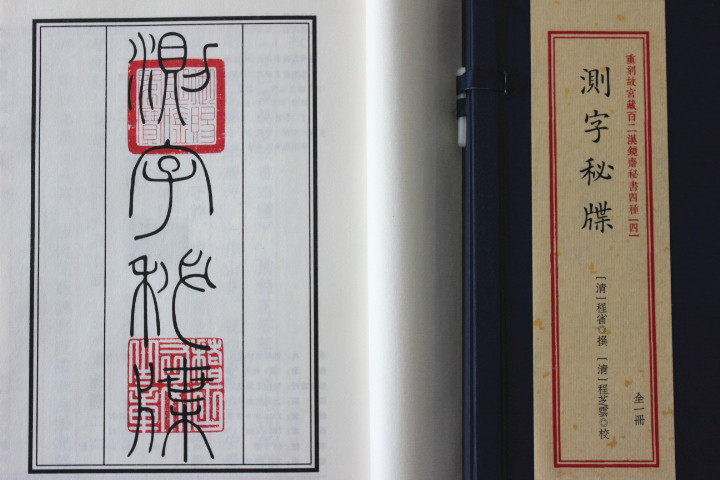 測字秘牒
重刻故宮藏百二漢鏡齋秘書四種（四）
測字秘牒
［清］程省◎撰 ［清］程芝雲◎校
全一冊